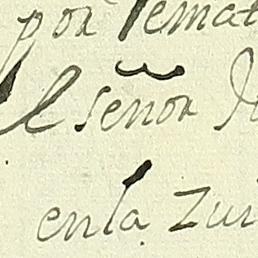 por Remat
el señor
en la Zur